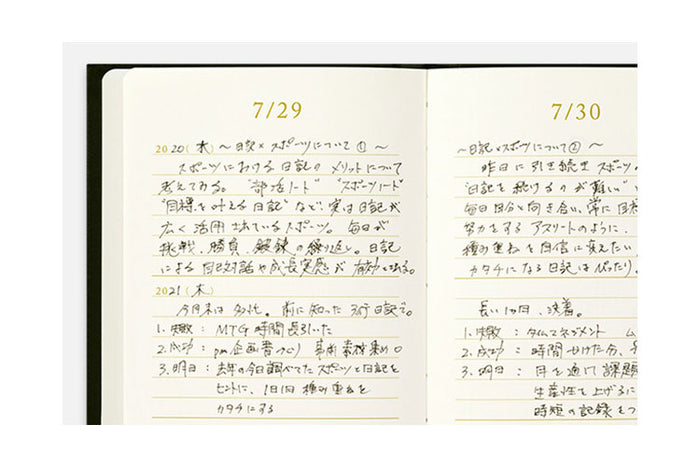 7/29
2020(木) 〜日記×スポーツについて①〜
スポーツにおける日記のメリットについて
考えてみる。"部活ノート" "スポーツノート"
"目標を叶える日記"など、実は日記が
広く活用出ているスポーツ。毎日が
挑戦、勝負、鍛錬の繰り返し。日記
による自己対話や成長実感が有効となる。
2021(木)
今月末は多忙。前に知った3行日記で。
1.失敗：MTG時間長引いた
2.成功：pm企画書づくり 事前素材集め○
3.明日：去年の今日調べてたスポーツと日記を
ヒントに、1日1日積み重ねを
カタチにする
7/30
〜日記×スポーツについて②〜
昨日に引き続きスポーツ。
"日記を続けるのが難しい"
毎日自分と向き合い、常に目標
努力をするアスリートのように、
積み重ねを自信に変えたい
カタチになる日記はぴったり。
長い1日、決着。
1.失敗：タイムマネジメント
2.成功：時間かけた分、
3.明日：月を通して課題
生産性を上げるに
時短の記録をつ